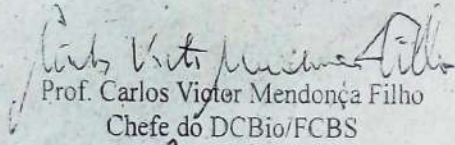 Carlos Victor Mendonça Filho
Prof. Carlos Victor Mendonça Filho
Chefe do DCBio/FCBS